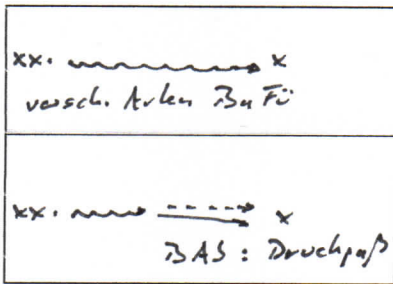 xx. x
versch. Arten BaFü
xx. x
BAS: Druckpaß